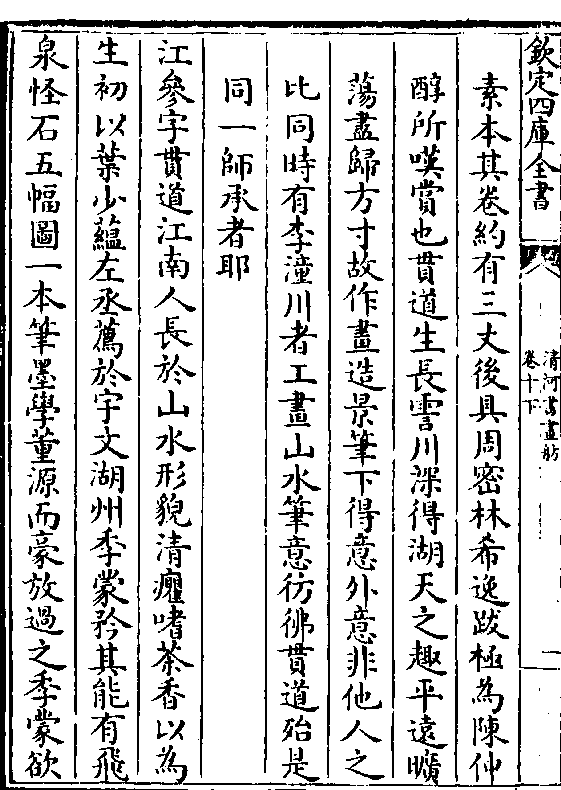 欽定四庫全書
清河書畫舫
卷十下
素本其卷約有三丈後具周密林希逸跋極為陳仲
醇所嘆賞也貫道生長霅川深得湖天之趣平遠曠
蕩盡歸方寸故作畫造景筆下得意外意非他人之
比同時有李潼川者工畫山水筆意彷彿貫道殆是
同一師承者耶
江參字貫道江南人長於山水形貌清癯嗜茶香以為
生初以葉少蘊左丞薦於宇文湖州季蒙矜其能有飛
泉怪石五幅圖一本筆墨學董源而豪放過之季蒙欲